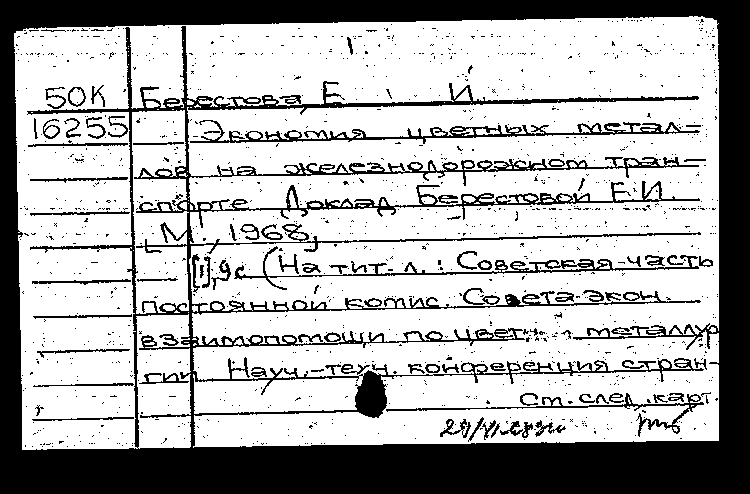 1.
50К Берестова, Е. И.
16255 Экономия цветных метал-
лов на железнодорожном тран-
спорте Доклад Берестовой Е.И.
[М., 1968]
[1], 9 с (На тит. л.: Советская часть
постоянной комис. Совета экон.
взаимопомощи по цветн. металлур
гии Науч.-техн. конференция стран-
См. след. карт.